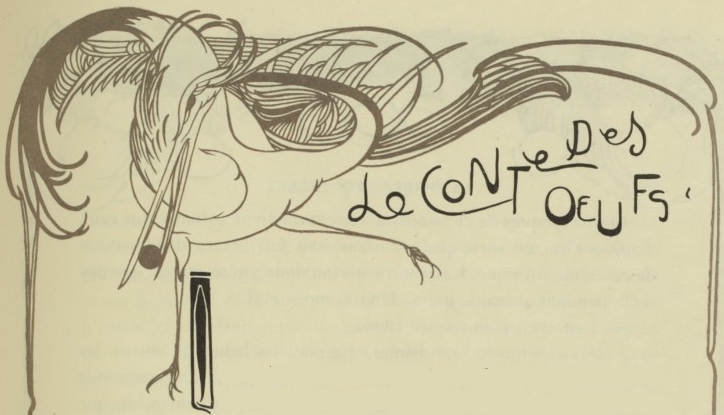 Le CONTe DeS
OEUFS